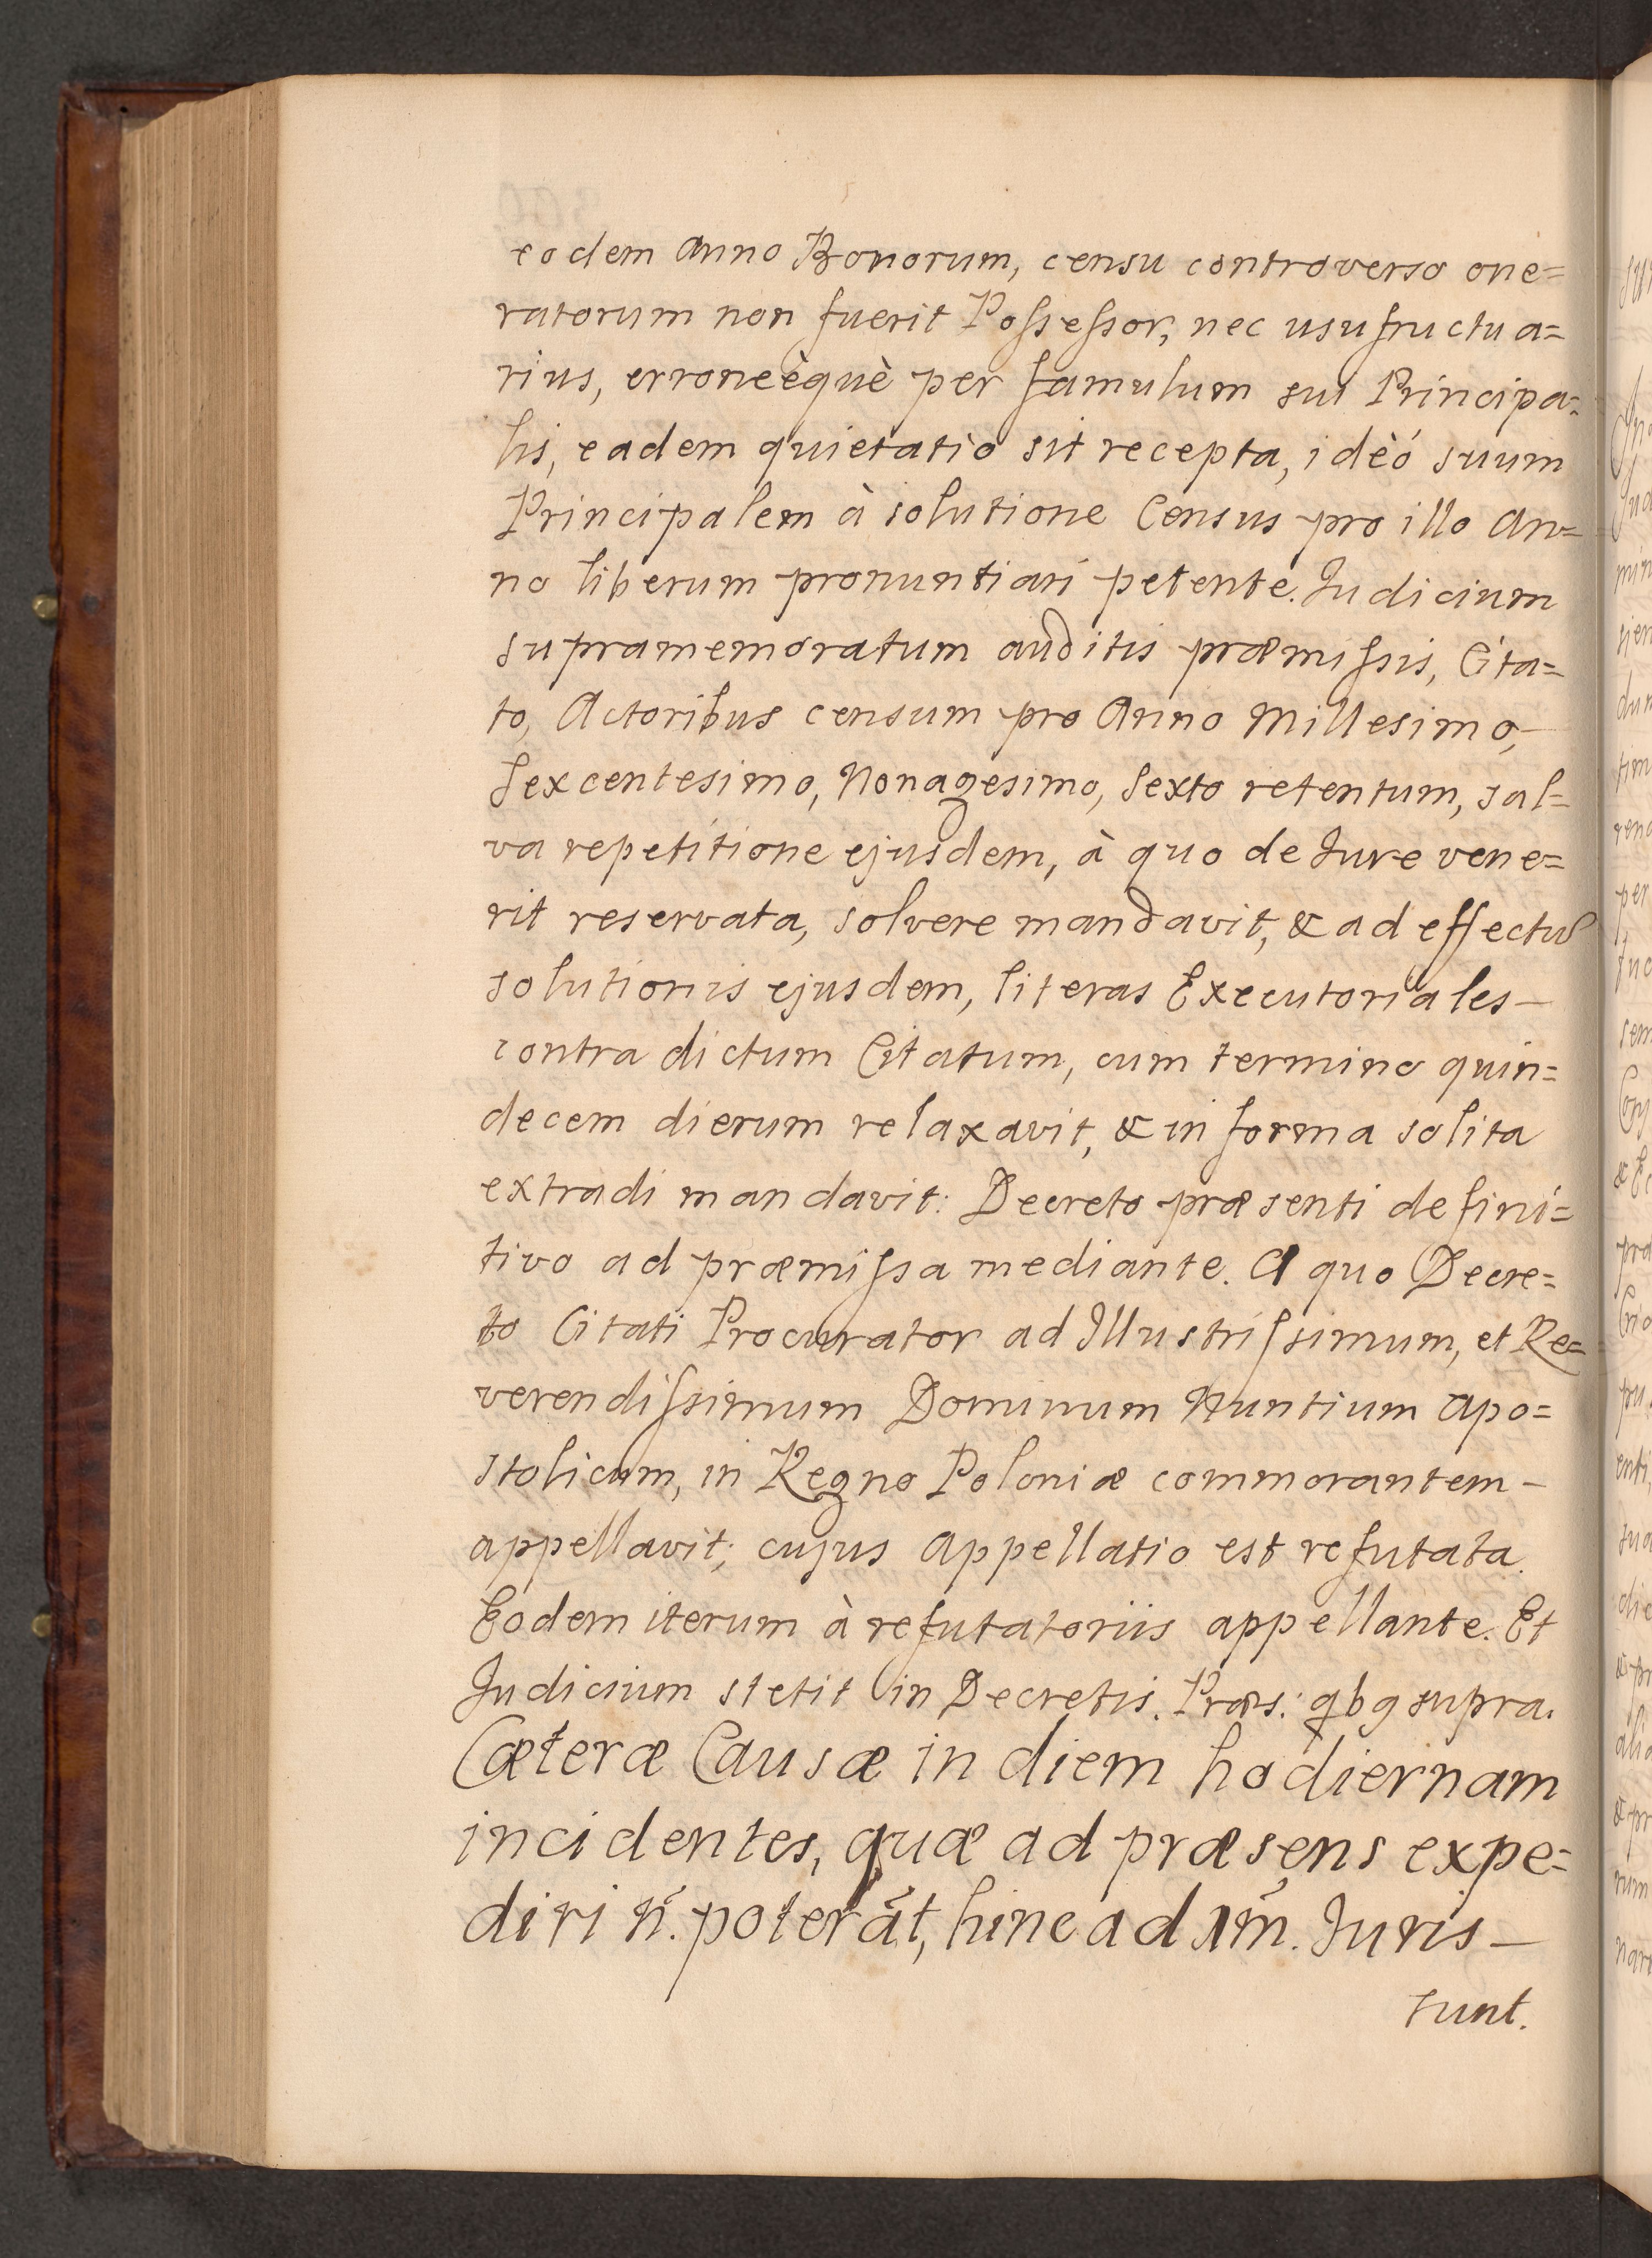 eodem Anno Bonorum, censu controverso one=
ratorum non fuerit Poſseſsor, nec usufructua=
rius, erroneèquè per famulum sui Principa=
lis, eadem quietatio sit recepta, idèó suum
Principalem à solutione Census pro illo An=
no liberum pronuntiari petente. Judicium
supramemoratum auditis præmiſsis, Cita=
to, Actoribus censum pro Anno Millesimo,
Sexcentesimo, Nonagesimo, Sexto retentum, sal=
va repetitione ejusdem, à quo de Jure vene=
rit reservata, solvere mandavit, & ad effectũ
solutionis ejusdem, literas Executoriales—
contra dictum Citatum, cum termino quin=
decem dierum relaxavit, & in forma solita
extradi mandavit: Decreto præsenti defini=
tivo ad præmiſsa mediante. A quo Decre=
to Citati Procurator ad Illustriſsimum, et Re=
verendiſsimum Dominum Nuntium Apo=
stolicum, in Regno Poloniæ commorantem—
appellavit; cujus Appellatio est refutata.
Eodem iterum à refutatoriis appellante. Et
Judicium stetit in Decretis. Præs: qbg supra.
Cæteræ Causæ in diem hodiernam
incidentes, quæ ad præsens expe=
diri ń. poterãt, hinc ad 1ḿ. Juris—
sunt.